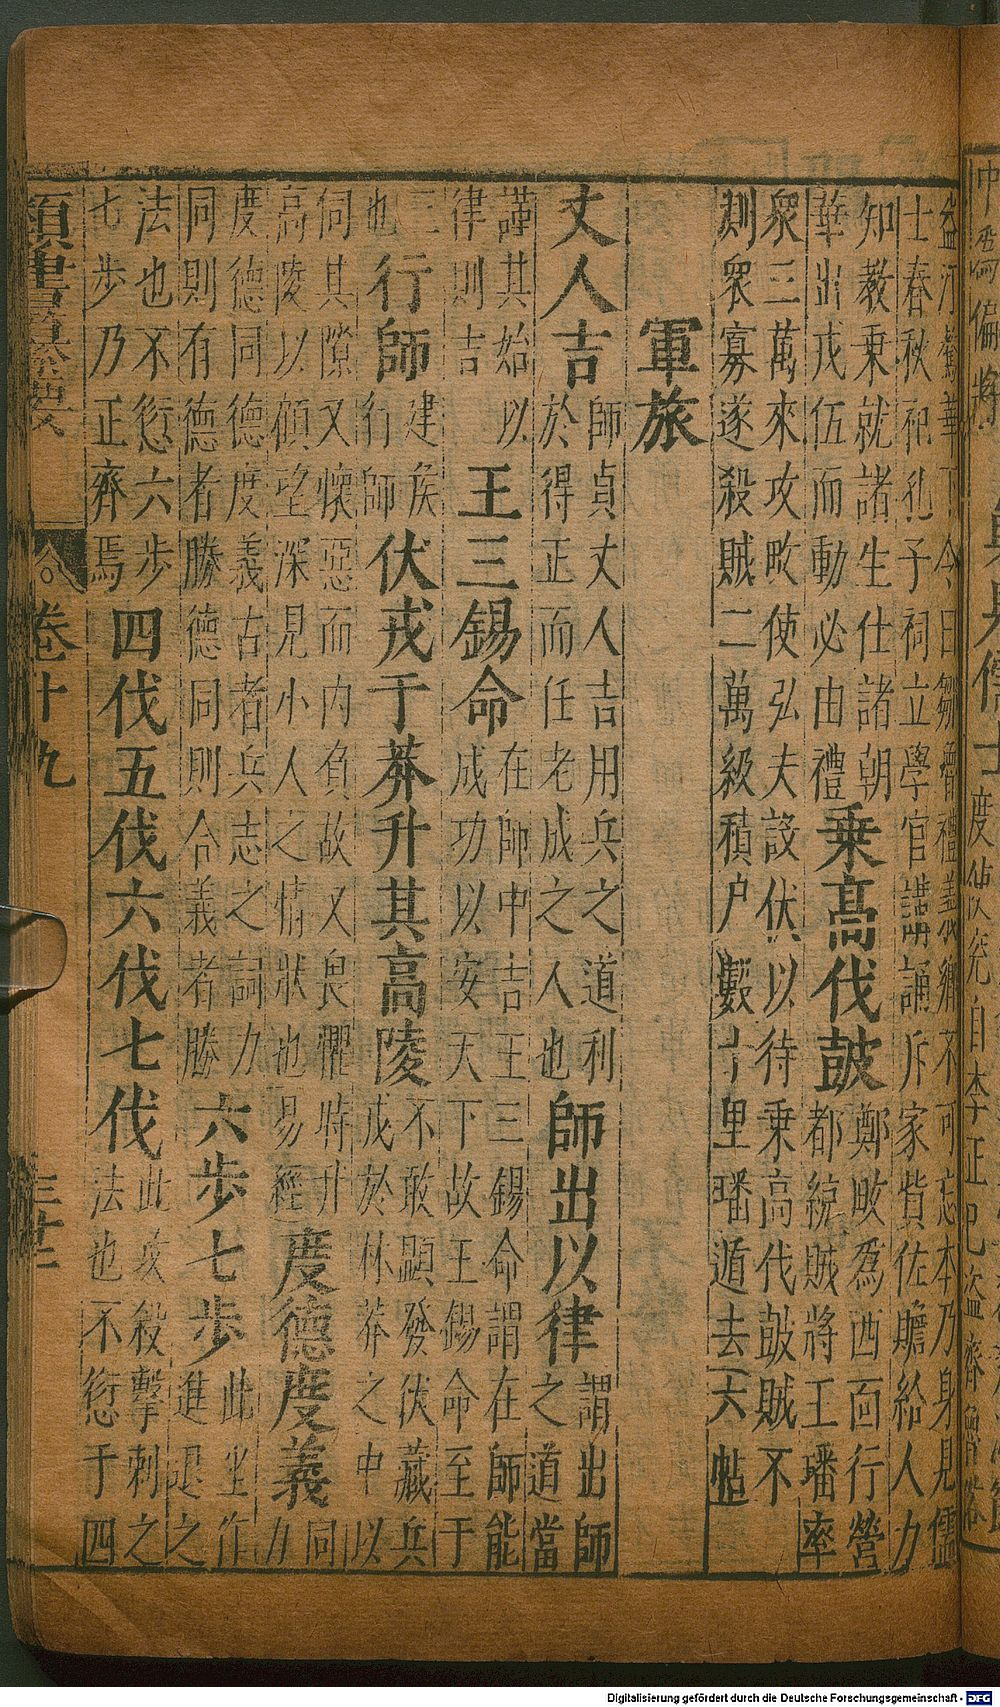 益河驚華下令今日鄒魯禮義鄉不可忘本乃身見儒
士春秋祀孔子祠立學官講誦斥家貲佐贍給人力
知教乗就諸生仕諸朝
華出戎伍而動必由禮
乗髙伐皷
鄭畋爲西面行營
都統賊將王璠率
衆三萬來攻畋使弘夫設伏以待乗高伐皷賊不
測衆寡遂殺賊二萬級積尸數十里璠遁去六帖
軍旅
丈人吉
師貞丈人吉用兵之道利
於得正而任老成之人也
師出以律
謂出師
之道當
謹其始以
律則吉
王三錫命
在師中吉王三錫命謂在師能
成功以安天下故王錫命至于
三
也
行師
建矦
行師
伏戎于莽升其高陵
不敢顯發伏藏兵
戎於林莽之中以
伺其隙又懷惡而内負故又畏懼時升
高陵以頋望深見小人之情狀也易經
度德度義
同
力
度德同德度義古者兵志之詞力
同則有德者勝德同則合義者勝
六步七步
此坐作
進退之
法也不愆六步
七步乃正齊焉
四伐五伐六伐七伐
此攻殺擊刺之
法也不愆于四
卷十九
Digitalisierung gefördert durch die Deutsche Forschungsgemeinschaft - DFG